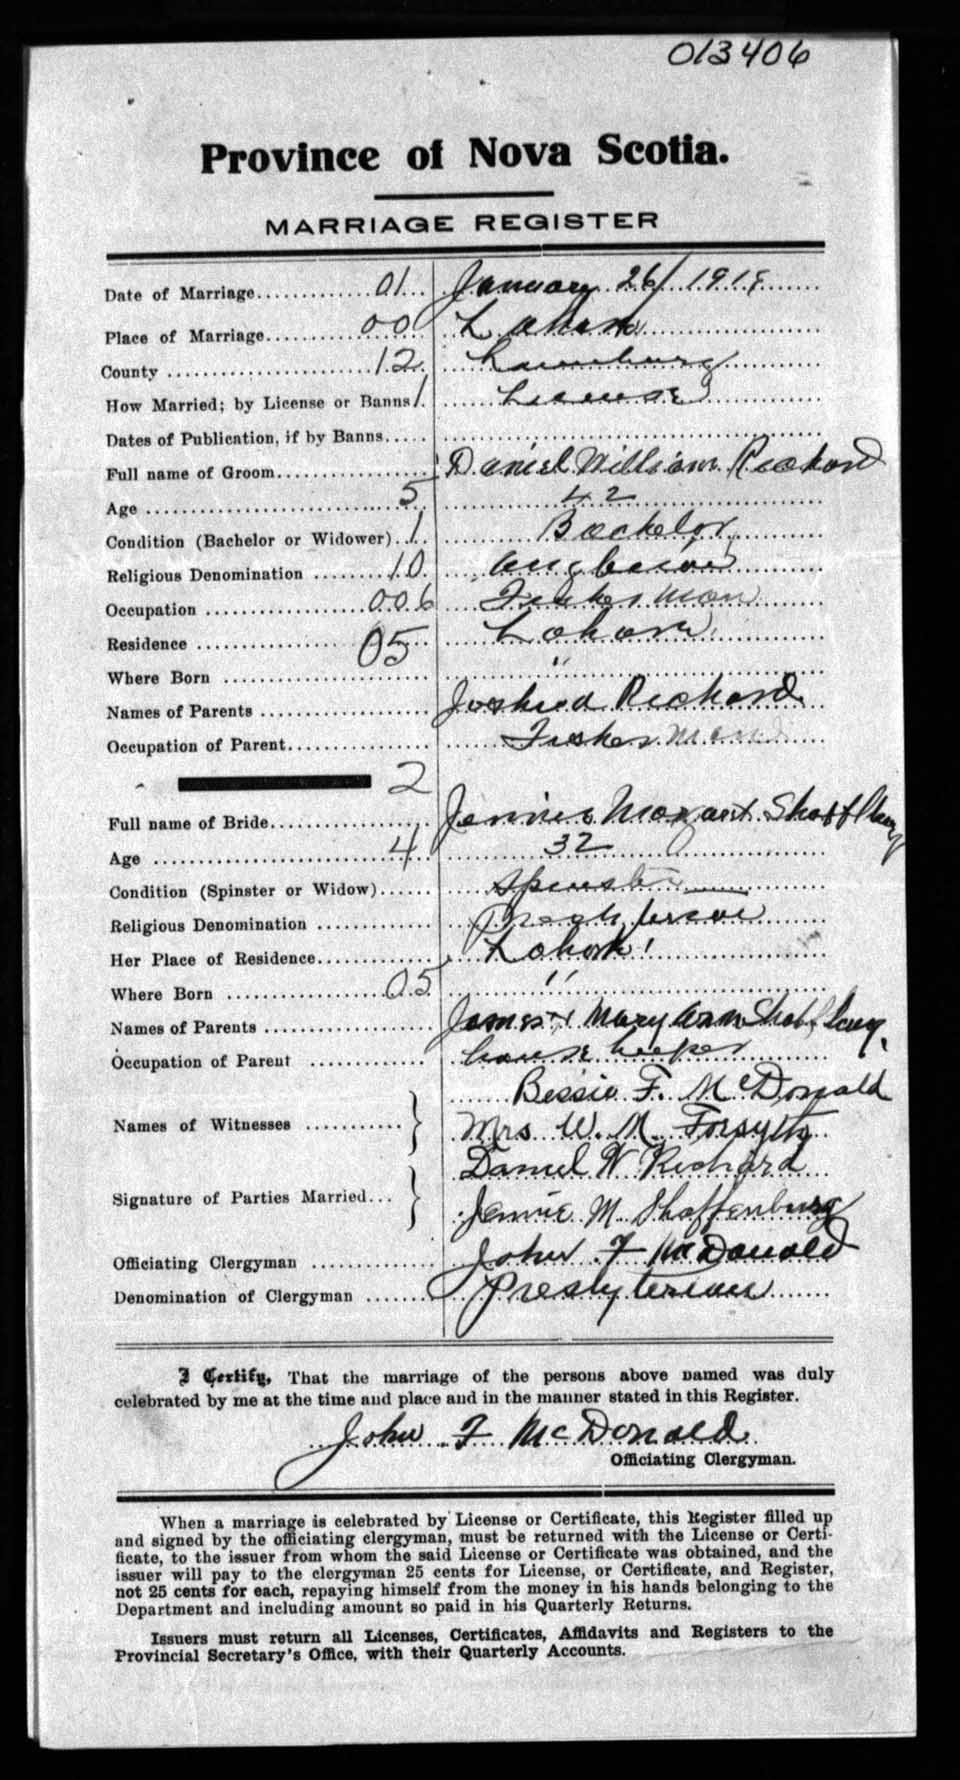 013406
Province of Nova Scotia.
MARRIAGE REGISTER
Date of Marriage 01 January 26/ 191
Place of Marriage 00 Lahave
County 12 Lunenburg
How Married; by License or Banns 1 License
Dates of Publication, if by Banns
Full name of Groom Daniel William Richard
Age 5 42
Condition (Bachelor or Widower) 1 Bachelor
Religious Denomination 10
Occupation 006 Fisherman
Residence 05 Lahave
Where Born "
Names of Parents Joshua Richard
Occupation of Parent Fisherman
2
Full name of Bride Jennie Margaret Shaffenburg
Age 4 32
Condition (Spinster or Widow) Spinster
Religious Denomination Presbyterian
Her Place of Residence Lahave
Where Born 05 "
Names of Parents James + Mary Ann
Occupation of Parent house keeper
Names of Witnesses Bessie F. McDonald
Mrs W. M. Forsyth
Signature of Parties Married Daniel W Richard
Jennie M Shaffenburg
Officiating Clergyman John F McDonald
Denomination of Clergyman Presbyterian
I Certify, That the marriage of the persons above named was duly
celebrated by me at the time and place and in the manner stated in this Register.
John F McDonald
Officiating Clergyman.
When a marriage is celebrated by License or Certificate, this Register filled up
and signed by the officiating clergyman, must be returned with the License or Certi-
ficate, to the issuer from whom the said License or Certificate was obtained, and the
issuer will pay to the clergyman 25 cents for License, or Certificate, and Register,
not 25 cents for each, repaying himself from the money in his hands belonging to the
Department and including amount so paid in his Quarterly Returns.
Issuers must return all Licenses, Certificates, Affidavits and Registers to the
Provincial Secretary's Office, with their Quarterly Accounts.